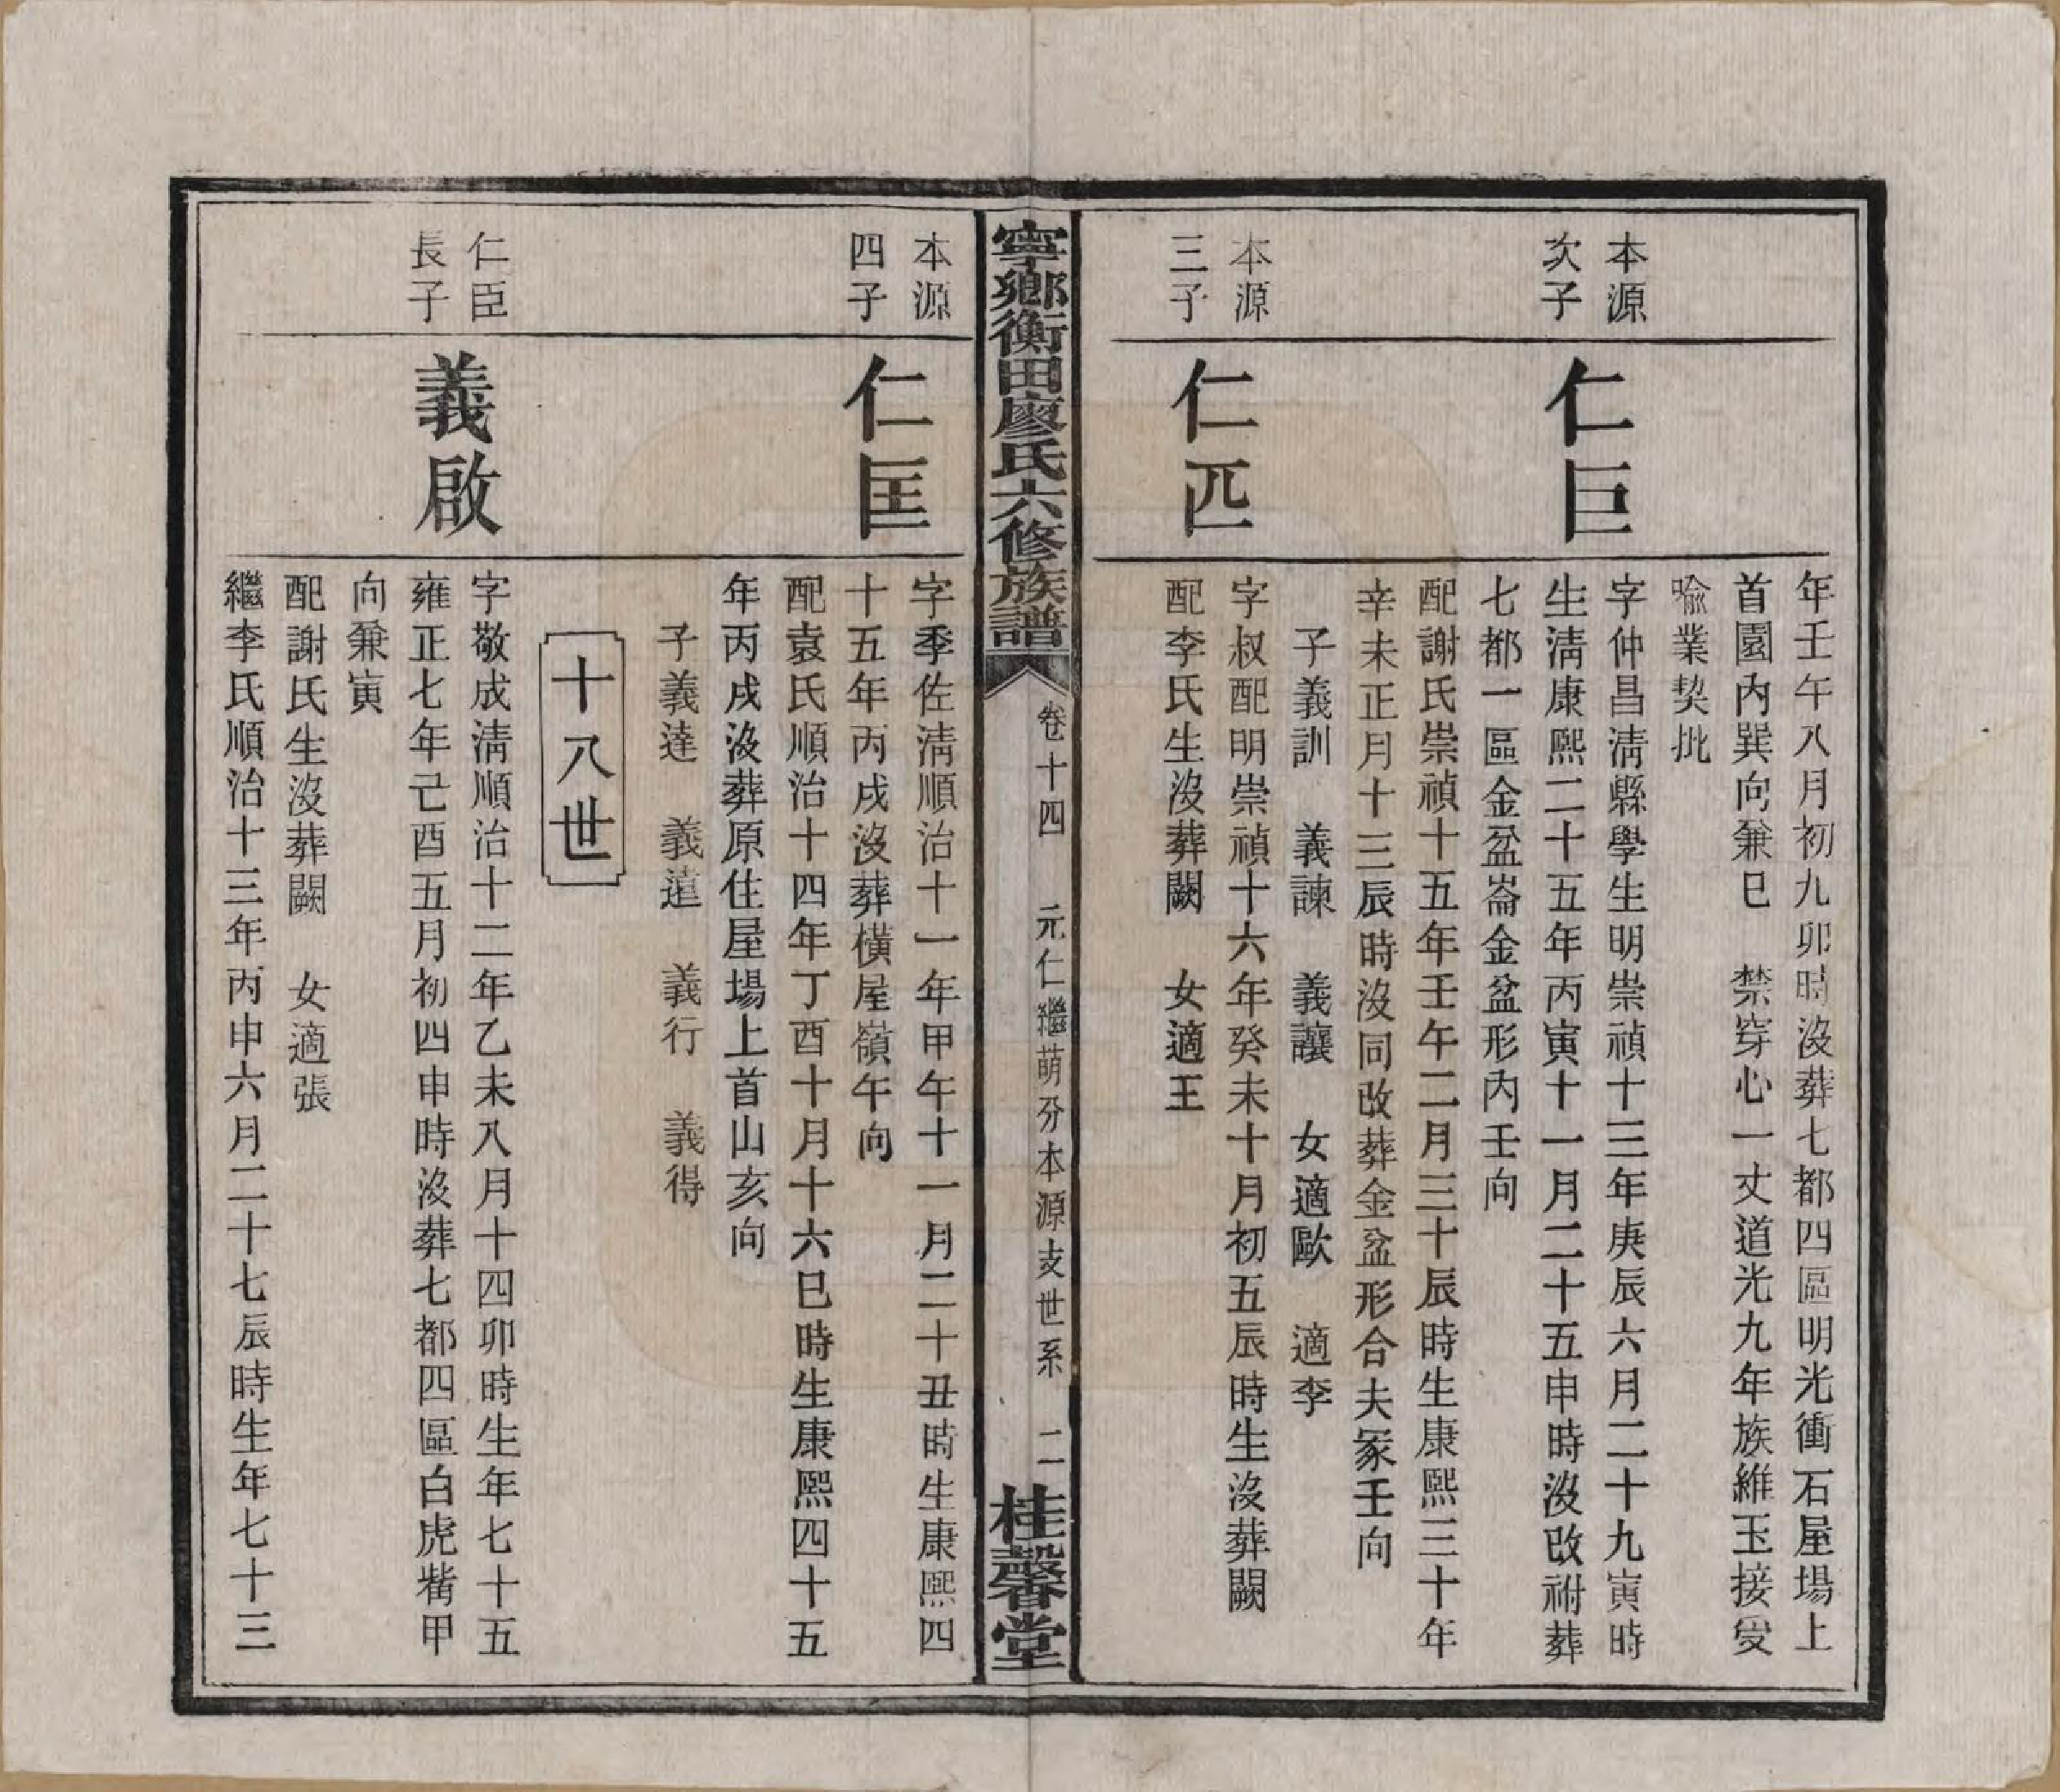 年壬午八月初九卯時沒葬七都四區明光衝石屋場上
首園內巽向兼巳　禁穿心一丈道光九年族維玉接受
喻業契批
本源
次子
仁巨
字仲昌淸縣學生明崇禎十三年庚辰六月二十九寅時
生淸康熙二十五年丙寅十一月二十五申時沒改祔葬
七都一區金盆崙金盆形內壬向
配謝氏崇禎十五年壬午二月三十辰時生康熙三十年
辛未正月十三辰時沒同改葬金盆形合夫冢壬向
子義訓　義諫　義讓　女適歐　適李
本源
三子
仁匹
字叔配明崇禎十六年癸未十月初五辰時生沒葬闕
配李氏生沒葬闕　女適王
寧鄉衡田廖氏六修族譜
卷十四　元仁繼萌分本源支世系　二
桂馨堂
本源
四子
仁匡
字季佐淸順治十一年甲午十一月二十丑時生康熙四
十五年丙戌沒葬橫屋嶺午向
配袁氏順治十四年丁酉十月十六巳時生康熙四十五
年丙戌沒葬原住屋場上首山亥向
子義達　義遠　義行　義得
十八世
仁臣
長子
義啟
字敬成淸順治十二年乙未八月十四卯時生年七十五
雍正七年己酉五月初四申時沒葬七都四區白虎觜甲
向兼寅
配謝氏生沒葬闕　女適張
繼李氏順治十三年丙申六月二十七辰時生年七十三